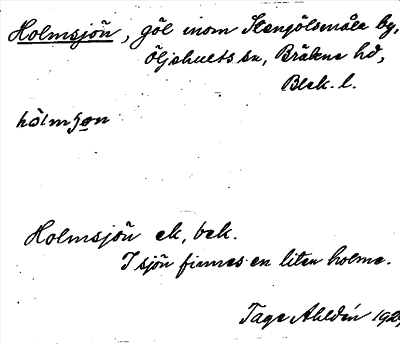 Holmsjön, göl inom Stengölsmåla by,
Öljehults sn, Bräkne hd,
Blek. l.
hòlmʃǫn
Holmsjön ek, bek.
I sjön finnes en liten holme.
Tage Ahldén 192